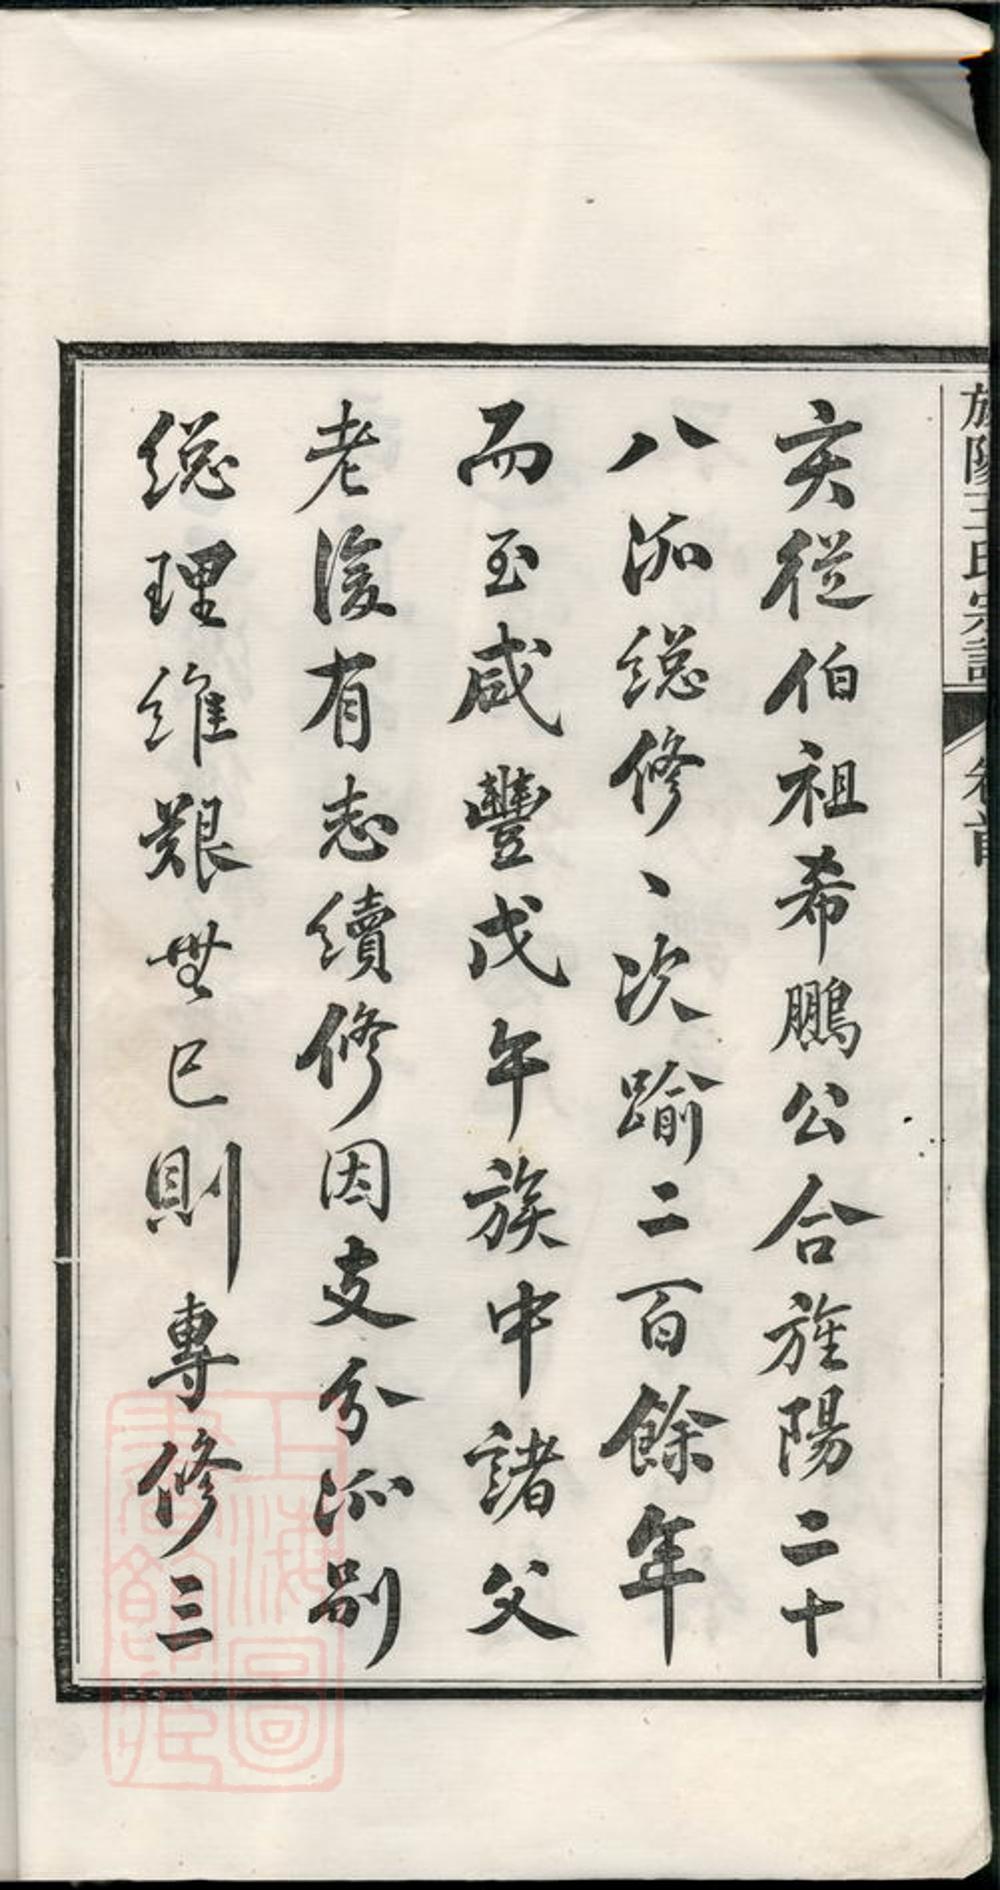 旌陽王氏宗譜
卷首
亥從伯祖希鵬公合旌陽二十
八派総修、次踰二百餘年
而至咸豐戊午族中諸父
老復有志續修因支分派別
総理維艱無已則專修三
上海圖書館藏